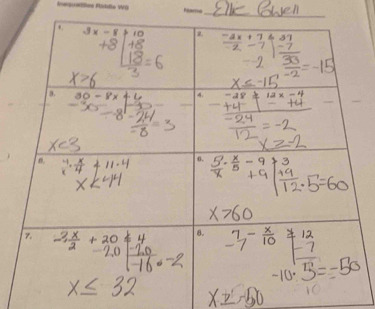 Inequalities Ronda WS
1.
3x - 8 > 10
+8 +8
18 = 6
3
x>6
2.
-2x + 7 ≥ 37
-2 -7 -7
-2 30 = -15
-2
x ≤ -15
3.
30 - 8x
-30 -30
-8 -24 = 3
-8
x<3
4.
-28 ≥ 12x -4
+4 +4
-24 = -2
12
x≥-2
5.
11·4
x<44
6.
5· x/5 - 9 > 3
+9 +9
12·5=60
x>60
7.
x/2 + 20 4
-20 -20
-16·-2
x ≤ 32
8.
7 - x/10 ≥ 12
-7 -7
-10· 5 = -50
10
x≥-50